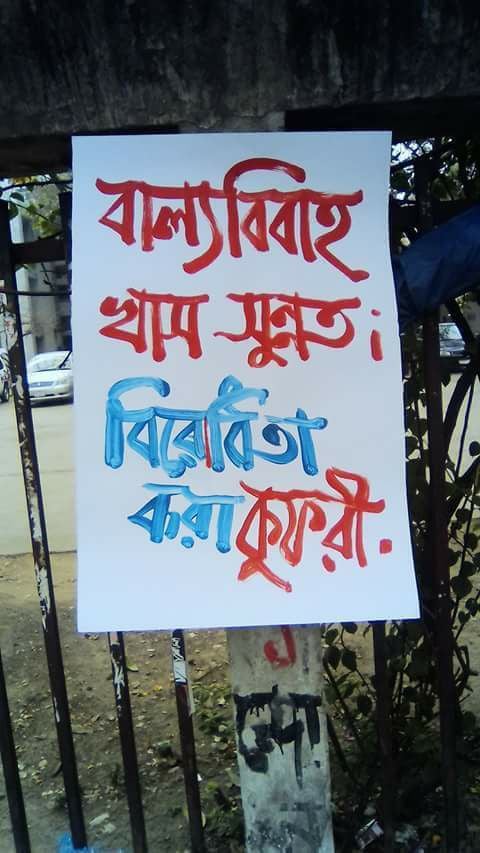 বাল্যবিবাহ
খাস সুন্নত;
বিরোধিতা
করা কুফরী.